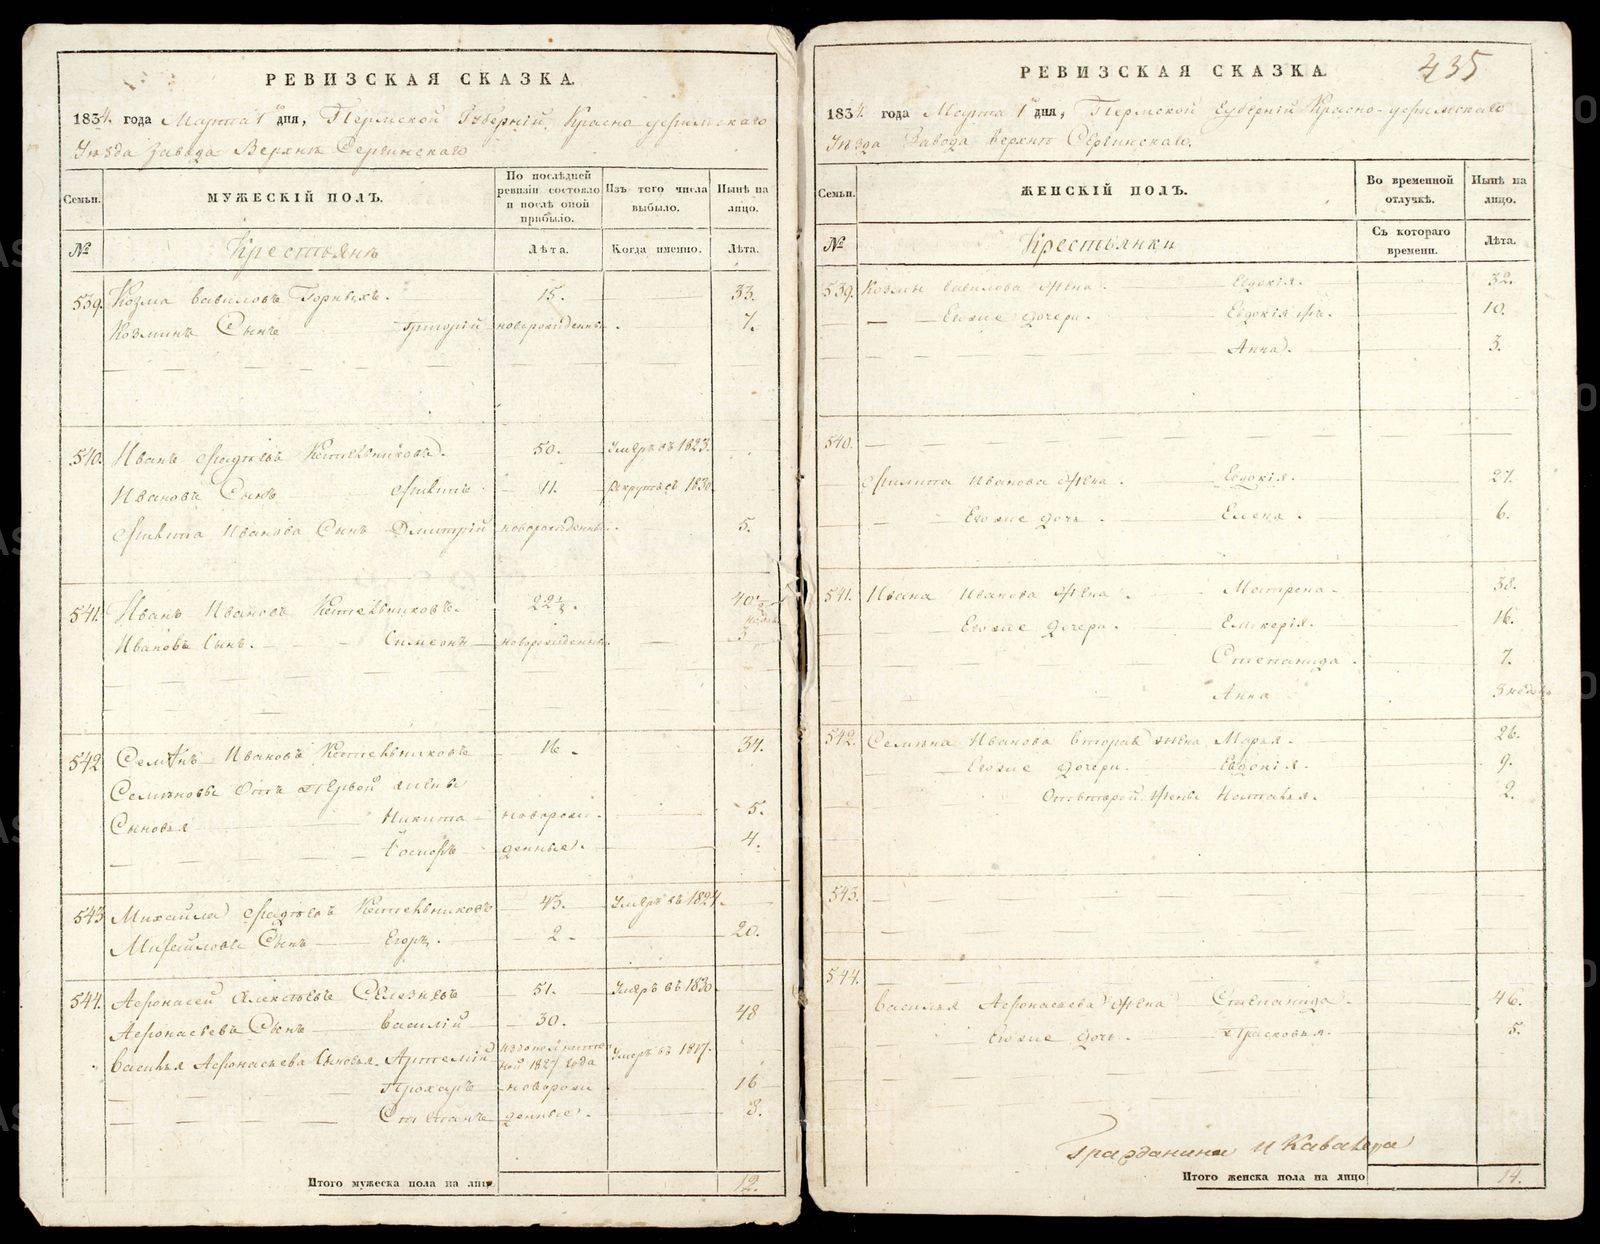 РЕВИЗСКАЯ СКАЗКА.
1834. года Марта 1 дня, Пермской Губерніи, Красно-уфимскаго
Уѣзда Завода Верхнѣ Сергинскаго
Семьи.
МУЖЕСКІЙ ПОЛЪ.
По послѣдней ревизіи состояло и послѣ оной прибыло.
Изъ того числа выбыло.
Нынѣ на лицо.
№
Крестьянъ
Лѣта.
Когда именно.
Лѣта.
539. Козма Вавиловъ Горныхъ. 15. 33.
Козминъ Сынъ Григорій новорожденный. 7.
540. Иванъ Фадѣевъ Котельниковъ. 50. Умеръ въ 1823.
Ивановъ Сынъ 11. 1830
Иванова Сынъ Дмитрій новорожденный. 5.
541. Иванъ Ивановъ Котельниковъ. 22½. 40½
Ивановъ Сынъ. Симеонъ новорожденный. 3
542 Семенъ Ивановъ Котельниковъ 16. 34.
Семеновы Отъ первой жены
Сыновья Никита новорож- 5.
Іосифъ денные. 4.
543 Михайла Фадѣевъ Котельниковъ 43. Умеръ въ 1824.
Михайловъ Сынъ Егоръ. 2. 20.
544. Афонасей Алексѣевъ Селезневъ 51. Умеръ въ 1830.
Афонасьевъ Сынъ Василій 30. 48
Василья Афонасьева Сыновья Артемій 1827 года Умеръ въ
Прохоръ новорож- 16
Степанъ денные. 3.
Итого мужеска пола на лицо 12.
435
РЕВИЗСКАЯ СКАЗКА.
1834. года Марта 1 дня, Пермской Губерніи Красно-уфимскаго
Уѣзда Завода Верхнѣ Сергинскаго.
Семьи.
ЖЕНСКІЙ ПОЛЪ.
Во временной отлучкѣ.
Нынѣ на лицо.
№
Крестьянки
Съ котораго времени.
Лѣта.
539. Козмы Вавилова жена. Евдокія. 32.
Егоже дочери. Евдокія 10.
Анна. 3.
540.
Иванова жена. Евдокія. 27.
Егоже дочь. Елена. 6.
541. Ивана Иванова жена Матрена. 38.
Егоже дочери. Гликерія. 16.
Степанида. 7.
Анна 3 недѣль
542. Семена Иванова вторая жена Марья. 26.
Егоже дочери. Евдокія. 9.
Отъ второй жены Наталья. 2.
543.
544.
Василья Афонасьева жена Степанида. 46.
Егоже дочь. Прасковья. 5.
Гражданина и Кавалера
Итого женска пола на лицо 14.